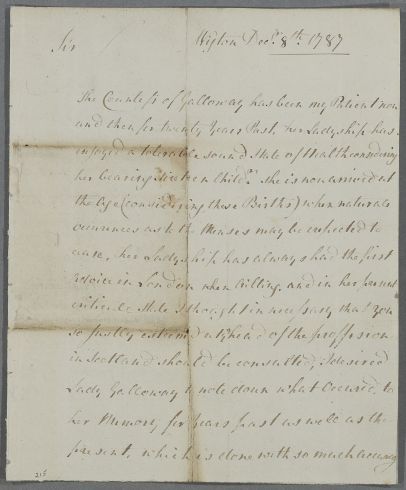 Sir
Wigton Decr. 8th. 1787
The Countess of Galloway has been my Patient now
and then for twenty Years Past, her Ladyship has
injoyed a tolerable sound State of Health considering
her bearing Sixteen Childn. She is now arrived at
the Age (considering these Births) when naturale
ocurences as to the Menses may be expected to
cease, her Ladyship has always had the first
advice in London when ailling, and in her present
critical State I thought it necessary that you
so justly esteemed at head of the proffesion
in Scotland should be consulted, I desired
Lady Galloway to note down what Occured to
her Memory for Years past as well as the
present, which is done with so much accuracy